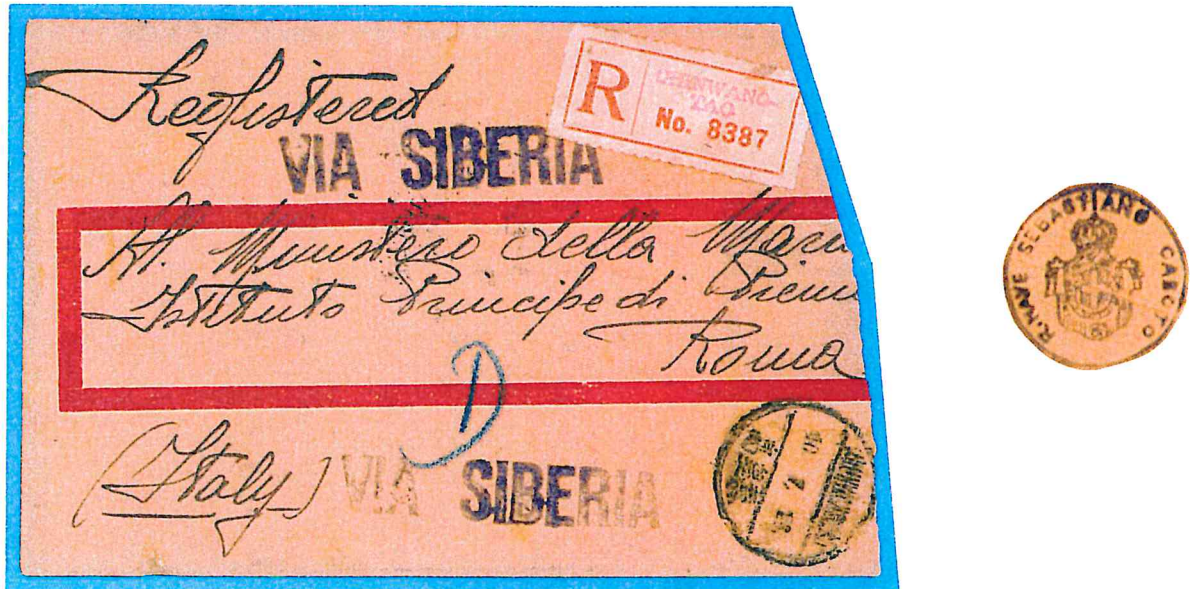 Registered
R
CHINWANG-
TAO
No. 8387
VIA SIBERIA
Al Ministero della
Istituto Principe di
Roma
D
(Italy)
VIA SIBERIA
R. NAVE SEBASTIANO CABOTO